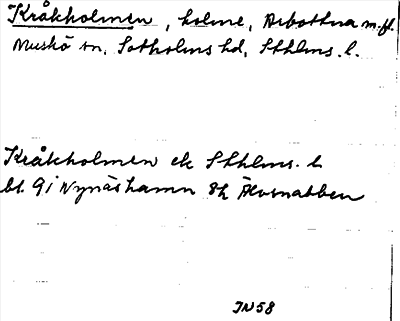 Kråkholmen, holme, Arbottna m.fl.
Muskö sn, Sotholms hd, Sthlms. l.
Kråkholmen ek Sthlms. l
bl. 9 i Nynäshamn 8h Älvsnabben
JN58